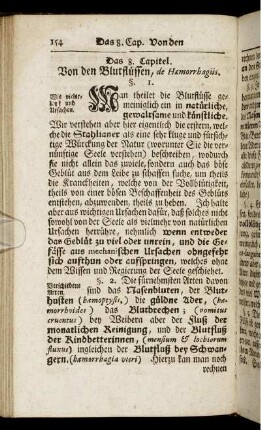 154 Das 8. Cap. Von den
Das 8. Capitel.
Von den Blutflüssen, de Hæmorrhagiis.
§. 1.
Man theilet die Blutflüsse ge-
meiniglich ein in natürliche,
gewaltsame und künstliche.
Wir verstehen aber hier eigentlich die erstern, wel-
che die Stahlianer als eine sehr kluge und fürsich-
tige Würckung der Natur (worunter Sie die ver-
nünftige Seele verstehen) beschreiben, wodurch sie
nicht allein das zu viele, sondern auch das böse
Geblüt aus dem Leibe zu schaffen suche, um theils
die Kranckheiten, welche von der Vollblütigkeit,
theils von einer bösen Beschaffenheit des Geblüts
entstehen, abzuwenden, theils zu heben. Ich halte
aber aus wichtigen Ursachen dafür, daß solches nicht
sowohl von der Seele als vielmehr von natürlichen
Ursachen herrühre, nemlich wenn entweder
das Geblüt zu viel oder unrein, und die Ge-
fässe aus mechanischen Ursachen ohngefehr
sich aufthun oder aufspringen, welches ohne
dem Wissen und Regierung der Seele geschiehet.
§. 2. Die fürnehmsten Arten davon
sind das Nasenbluten, der Blut-
husten (hæmoptysis,) die güldne Ader, (hæ-
morrhoides) das Blutbrechen; (vomitus
cruentus) bey Weibern aber der Fluß der
monatlichen Reinigung, und der Blutfluß
der Kindbetterinnen, (mensium & lochiorum
fluxus) ingleichen der Blutfluß bey Schwan-
gern. (hæmorrhagia uteri) Hierzu kan man noch
rechnen
Ursachen.
Arten.